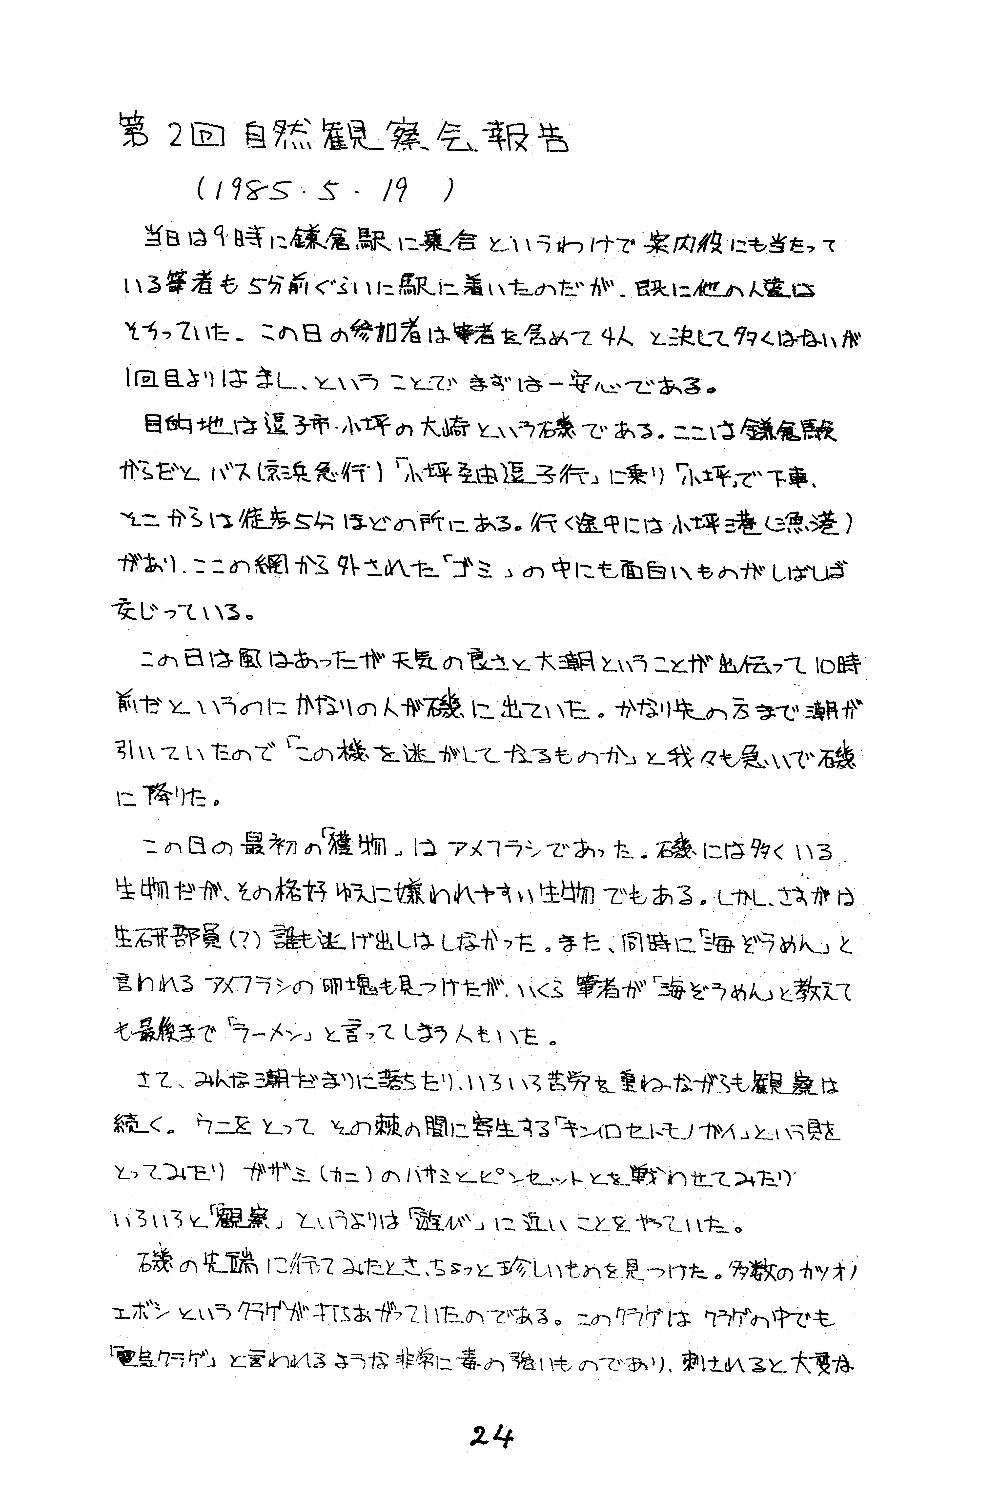 第2回自然観察会報告
(1985.5.19)
当日は9時に鎌倉駅に集合というわけで案内役にも当たって
いる筆者も5分前ぐらいに駅に着いたのだが、既に他の人達は
そろっていた。この日の参加者は筆者を含めて4人と決して多くはないが
1回目よりはまし、ということでまずは一安心である。
目的地は逗子市・小坪の大崎という磯である。ここは鎌倉駅
からだとバス(京浜急行)「小坪経由逗子行」に乗り「小坪」で下車、
そこからは徒歩5分ほどの所にある。行く途中には小坪港(漁港)
があり、ここの網から外された「ゴミ」の中にも面白いものがしばしば
交じっている。
この日は風はあったが天気の良さと大潮ということが出伝って10時
前だというのにかなりの人が磯に出ていた。かなり先の方まで潮が
引いていたので「この機を逃がしてなるものか」と我々も急いで磯
に降りた。
この日の最初の「獲物」はアメフラシであった。磯には多くいる
生物だが、その格好ゆえに嫌われやすい生物でもある。しかし、さすがは
生研部員(?)誰も逃げ出しはしなかった。また、同時に「海ぞうめん」と
言われるアメフラシの卵塊も見つけたが、いくら筆者が「海ぞうめん」と教えて
も最後まで「ラーメン」と言ってしまう人もいた。
さて、みんな潮だまりに落ちたり、いろいろ苦労を重ねながらも観察は
続く。ウニをとってその棘の間に寄生する「キンイロセトモノガイ」という貝を
とってみたりガザミ(カニ)のハサミとピンセットとを戦わせてみたり
いろいろと「観察」というよりは「遊び」に近いことをやっていた。
磯の先端に行てみたとき、ちょっと珍しいものを見つけた。多数のカツオノ
エボシというクラゲが打ちあがっていたのである。このクラゲはクラゲの中でも
「電気クラゲ」と言われるような非常に毒の強いものであり、刺されると大変な
24